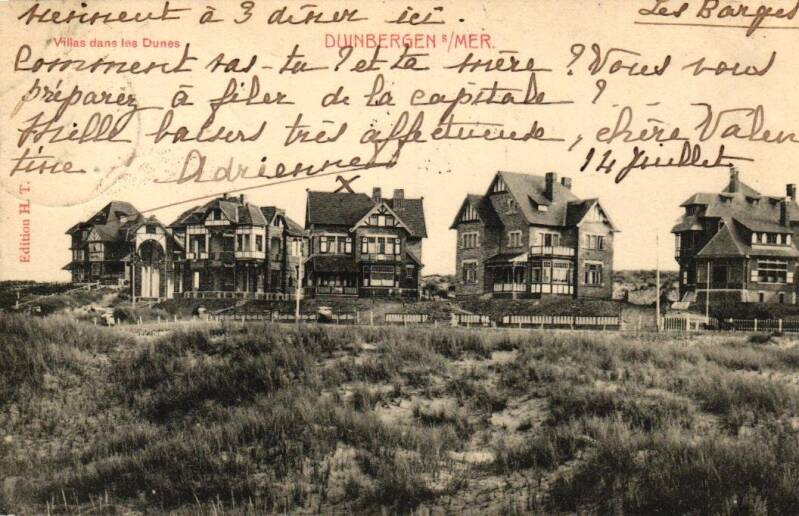 viennent à 3 dîner ici.
Les Barges
Villas dans les Dunes
DUINBERGEN S/MER.
Comment vas-tu? et ta mère? Vous vous
préparez à filer de la capitale?
Mille baisers très affectueux, chère Valen
tine. Adrienne
14 Juillet
Edition H. T.